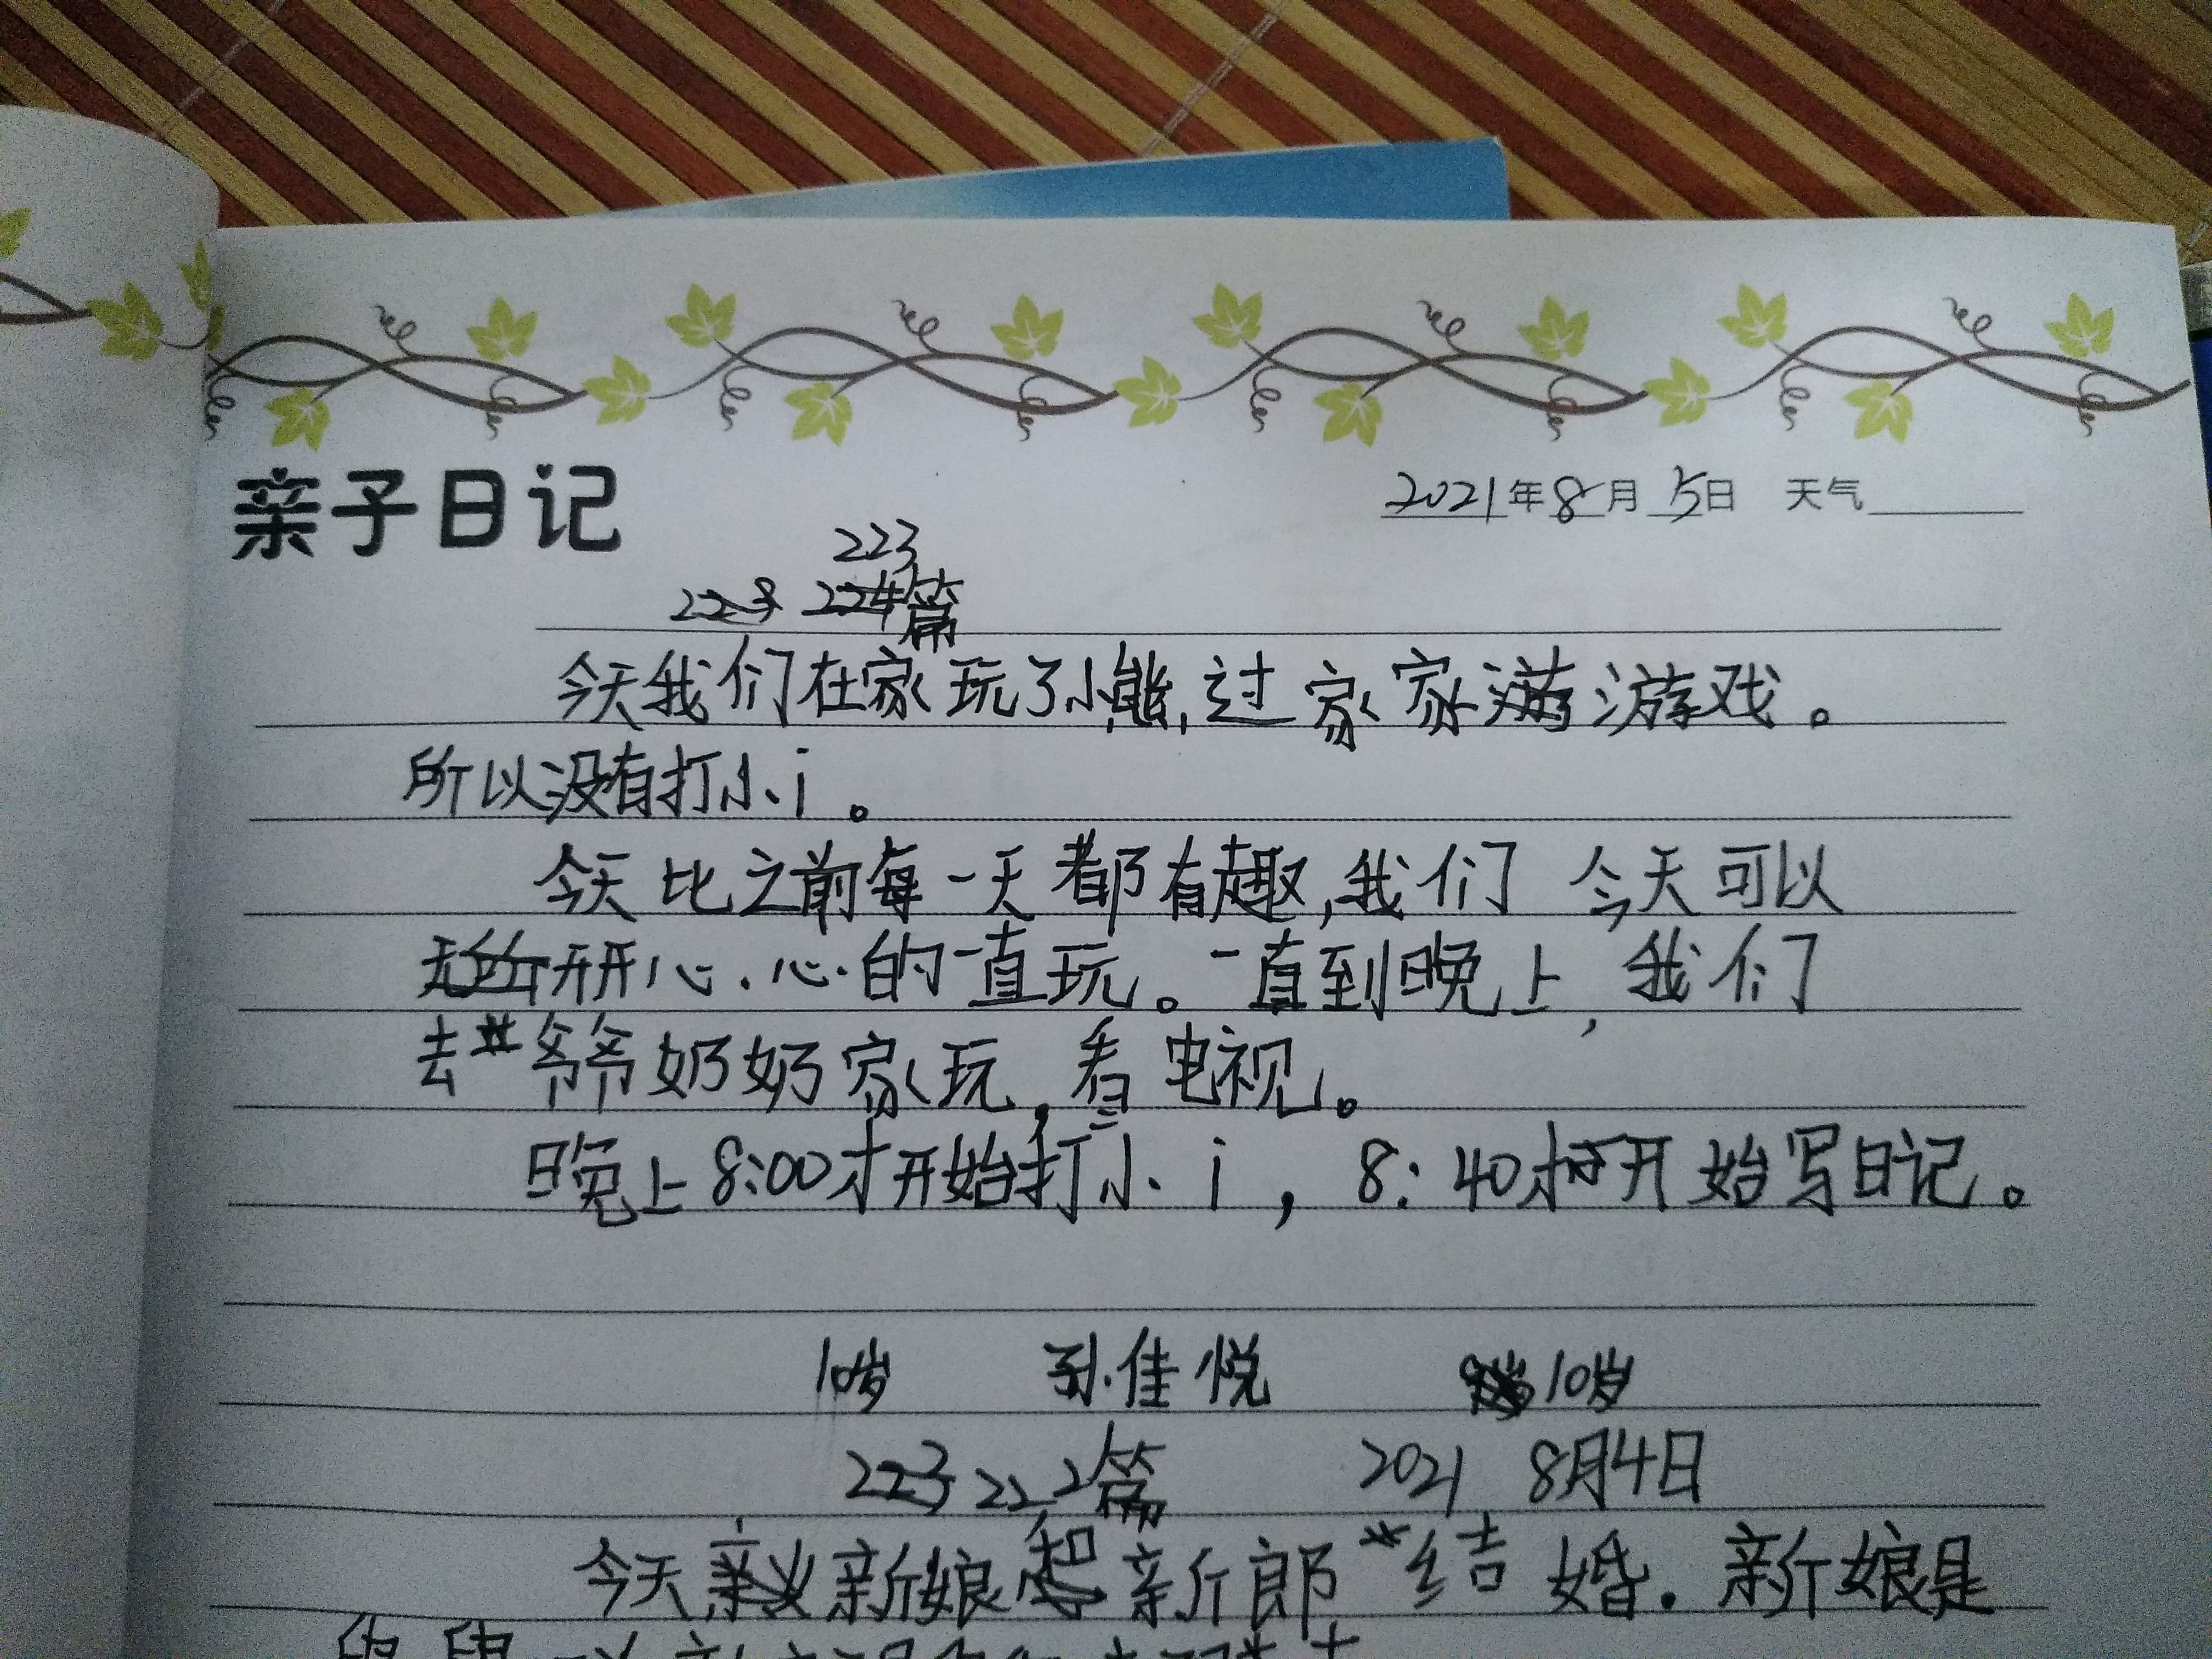 亲子日记
2021年8月5日 天气
223
223 224篇
今天我们在家玩了小熊,过家家游戏。
所以没有打小i。
今天比之前每一天都有趣,我们今天可以
开开心心的一直玩。一直到晚上,我们
去爷爷奶奶家玩,看电视。
晚上8:00才开始打小i,8:40才开始写日记。
10岁 孙佳悦 10岁
223 222篇 2021 8月4日
今天新娘和新郎结婚.新娘是